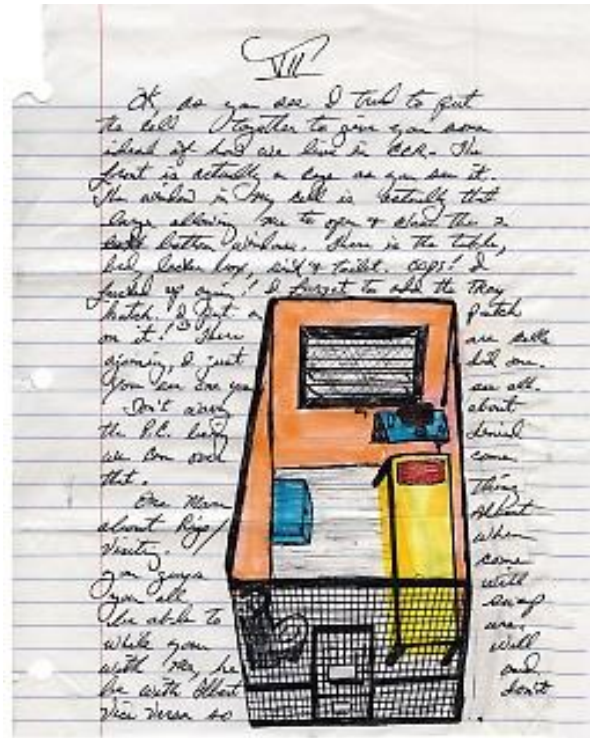 VII
Ok, as you see I tried to put
the cell together to give you some
ideal of how we live in CCR. The
front is actually a cage as you see it.
The window in my cell is actually that
large allowing me to open & close the 2
bottom windows. There is the table,
bed, locker box, sink & toilet. OOPS! I
fucked up again! I forgot to add the tray
hatch. I put a patch
on it! There are cells
ajoining, I just did one.
You see one you see all.
Don't worry about
the P.C. being denied
we can over come
that.
One More thing
about Rigo/ Albert
Visiting. When
you guys come
you all will
be able to swap
while your
with me, he will
be with Albert and
Vice Versa so don't